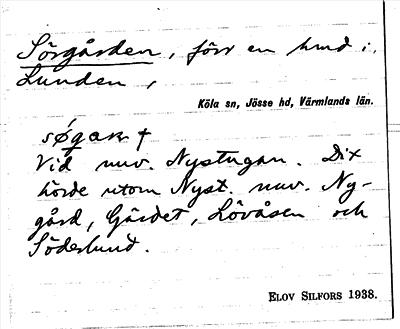 Sörgården, förr en lund i,
Lunden,
Köla sn, Jösse hd, Värmlands län.
Vid nuv. Nystugan. Dit
hörde utom Nyst. nuv. Ny-
gård, Gärdet, Lövåsen och
Söderlund.
ELOV SILFORS 1938.